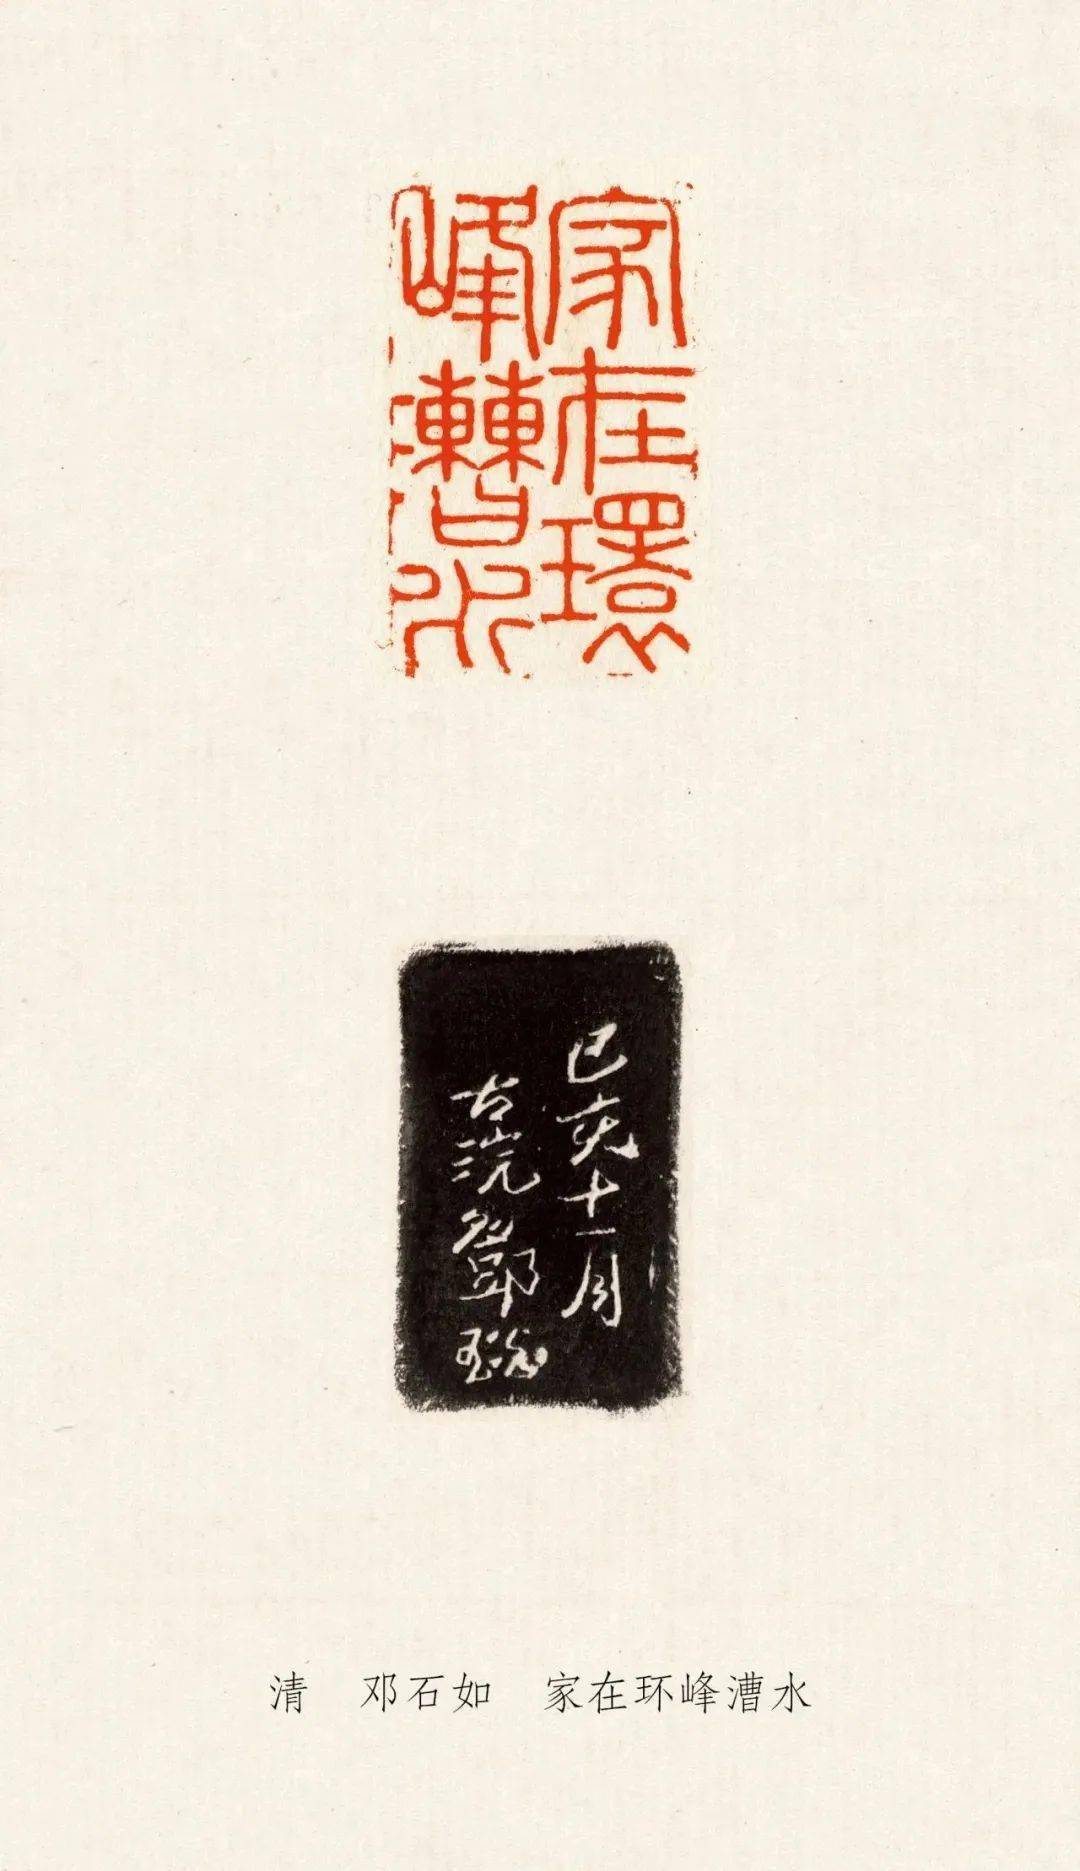 家在環
峰漕水
己亥十一月
古浣鄧琰
清 邓石如 家在环峰漕水